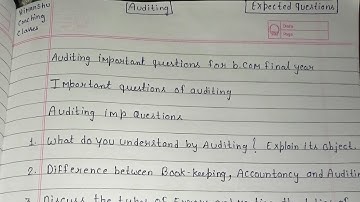 Himanshu Coaching Classes
Auditing
Expected Questions
Date
Page
Auditing important questions for b.com final year
Important questions of auditing
Auditing imp Questions
1. What do you understand by Auditing? Explain its object.
2. Difference between Book-keeping, Accountancy and Auditin
3. Discuss the types of